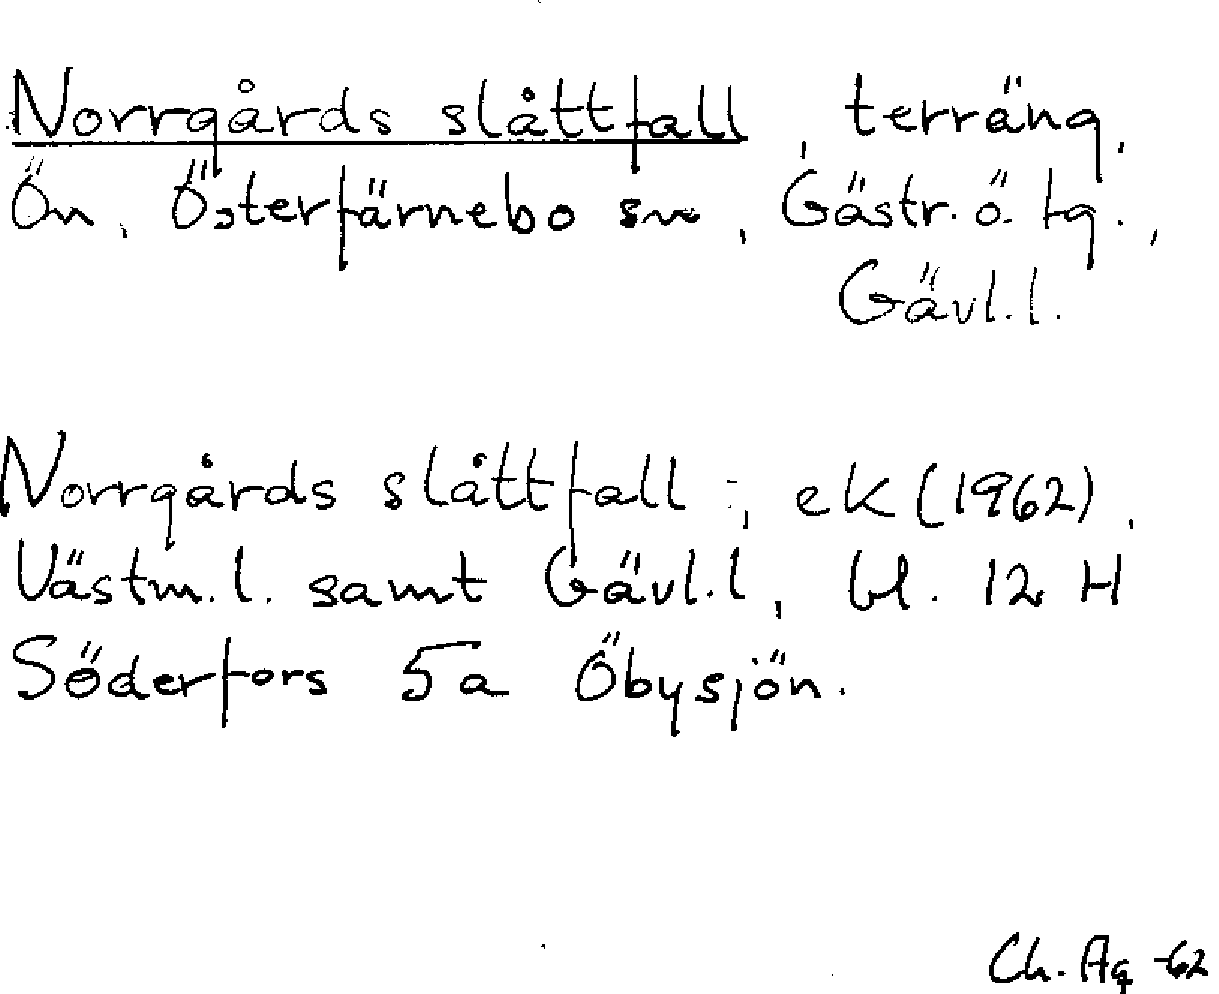 Norrgårds slåttfall, terräng,
Ön, Österfärnebo sn, Gästr. ö. tg.,
Gävl.l.
Norrgårds slåttfall -, ek (1962),
Västm.l. samt Gävl.l, bl. 12 H
Söderfors 5a Öbysjön.
Ch. Ag -62